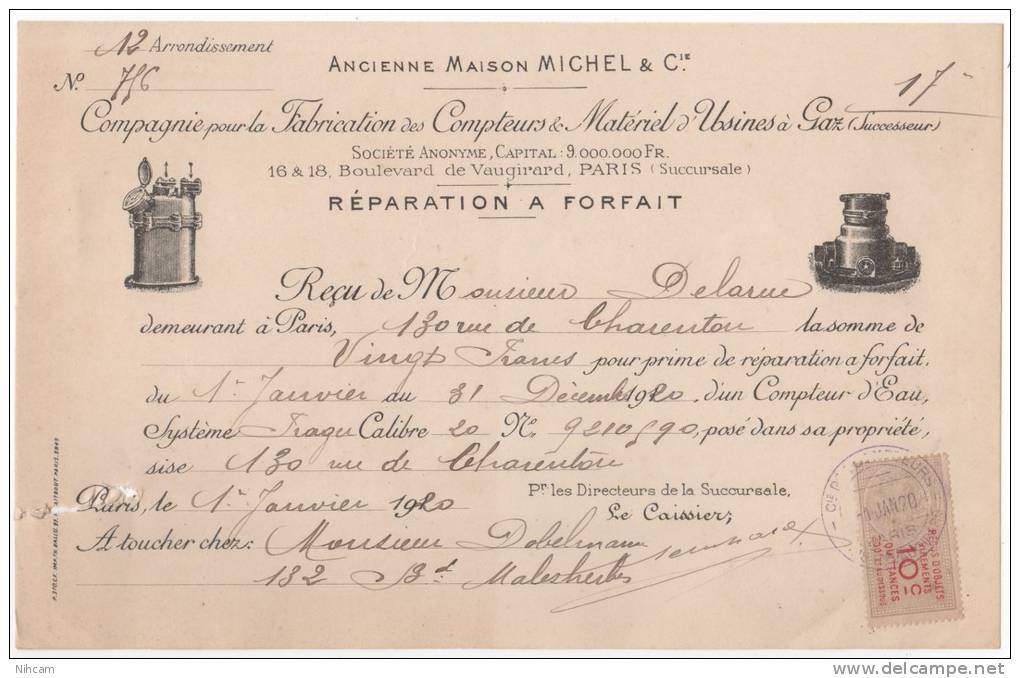 12 Arrondissement
ANCIENNE MAISON MICHEL & CIE.
No. 756
17-
Compagnie pour la Fabrication des Compteurs & Matériel d'Usines à Gaz (Successeur)
SOCIÉTÉ ANONYME, CAPITAL : 9.000.000 FR.
16 & 18, Boulevard de Vaugirard, PARIS (Succursale)
RÉPARATION A FORFAIT
Reçu de Monsieur Delarue
demeurant à Paris, 130 rue de Charenton la somme de
Vingt Francs pour prime de réparation a forfait,
du 1er Janvier au 31 Décemb 1920, d'un Compteur d'Eau,
Système Frager Calibre 20 No. 9210590, posé dans sa propriété,
sise 130 rue de Charenton
Paris, le 1er Janvier 1920
Pr. les Directeurs de la Succursale,
Le Caissier;
A toucher chez: Monsieur Dobelmann
132 Bd Malesherbes
JAN 20
PARIS
10c
QUITTANCES
Nihcam
delcampe.net